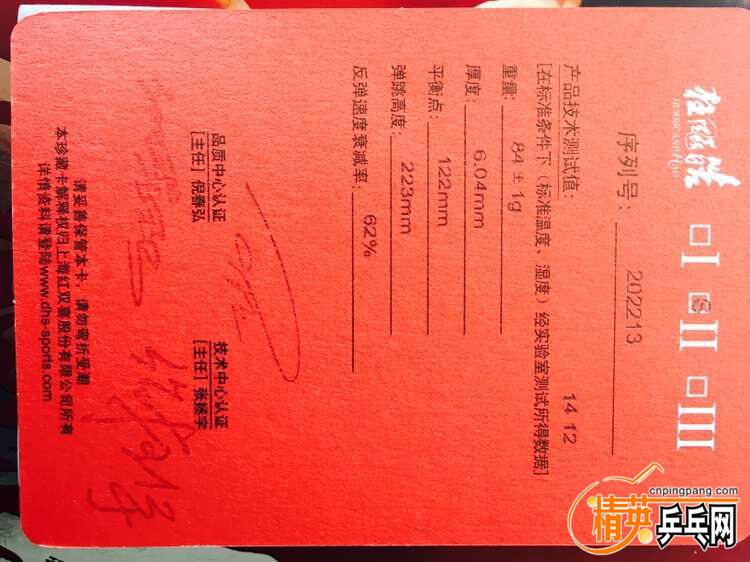 狂飚皓
HURRICANE HAO
□ I □ II □ III
S
序列号: 202213
产品技术测试值: 14 12
[在标准条件下(标准温度、湿度)经实验室测试所得数据]
重量: 84 ± 1g
厚度: 6.04mm
平衡点: 122mm
弹跳高度: 223mm
反弹速度衰减率: 62%
品质中心认证 技术中心认证
[主任] 倪春弘 [主任] 张拯宇
请妥善保管本卡,请勿弯折受潮
本珍藏卡解释权归上海红双喜股份有限公司所有
详情资料请登陆www.dhs-sports.com
cnpingpang.com
精英乒乓网